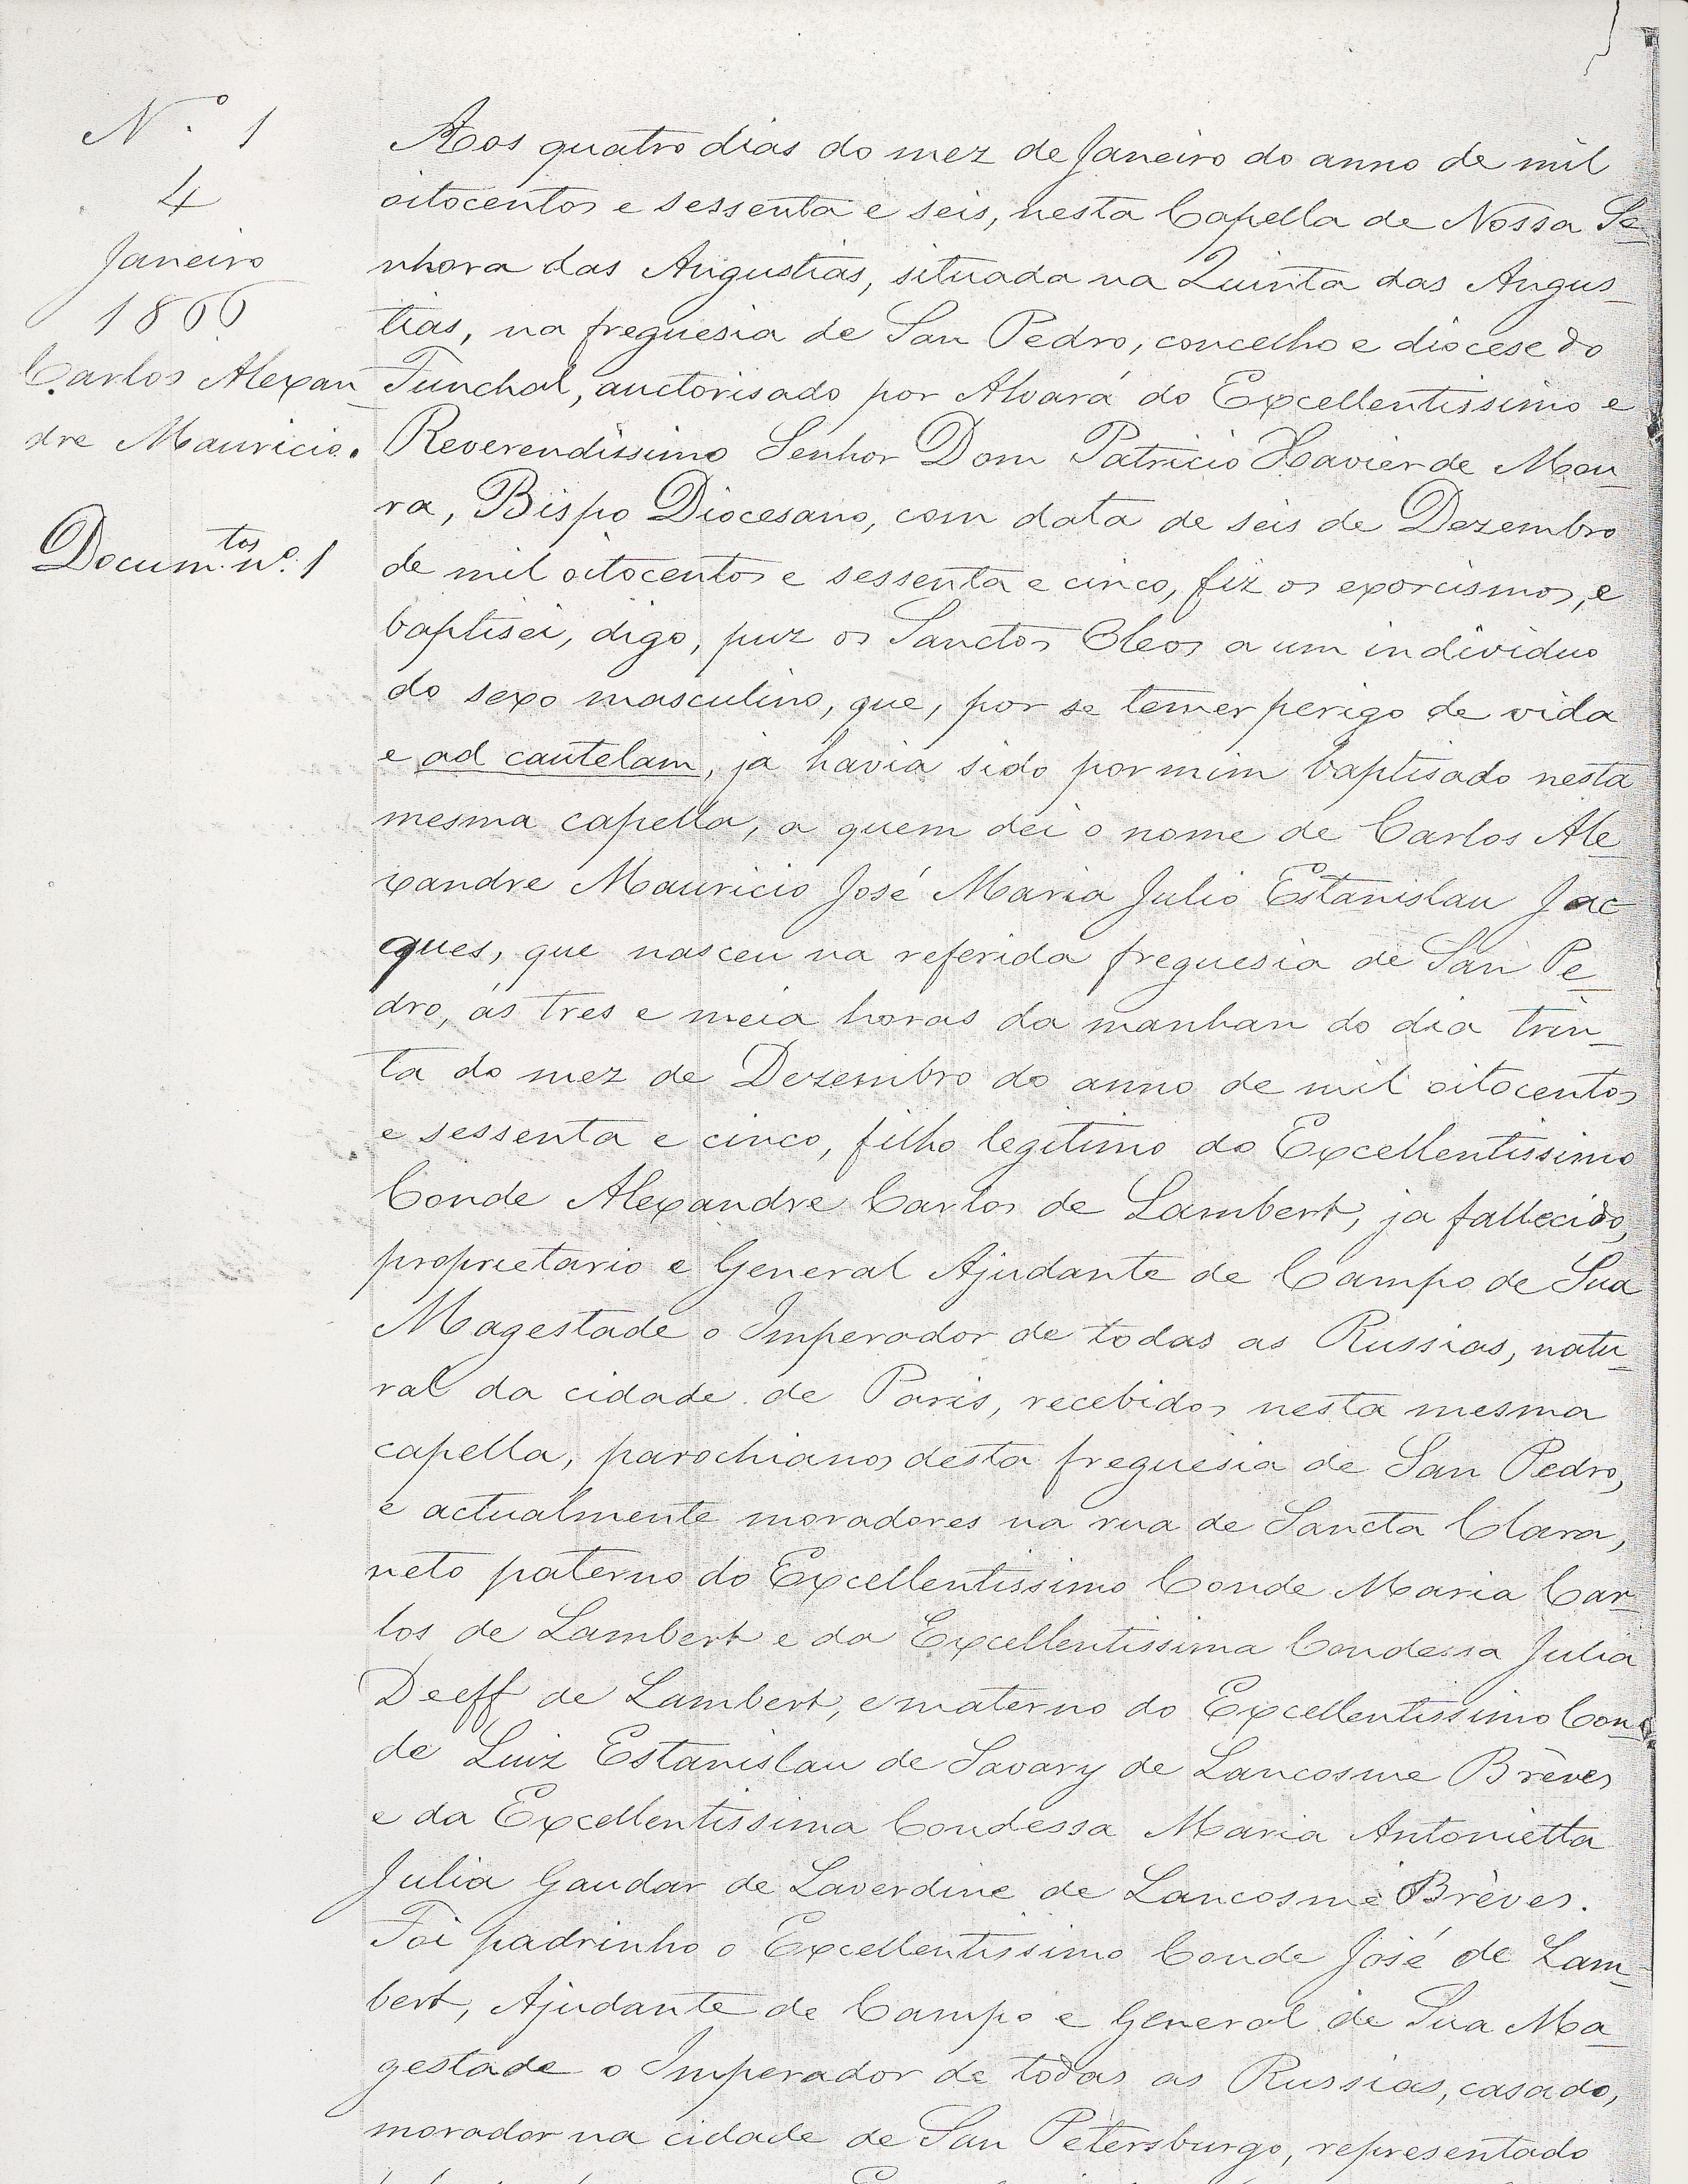 N.º 1
4
Janeiro
1866
Carlos Alexan
dre Mauricio.
Docum.tos nº. 1
Aos quatro dias do mez de Janeiro do anno de mil
oitocentos e sessenta e seis, nesta Capella de Nossa Se-
nhora das Angustias, situada na Quinta das Angus-
tias, na freguesia de San Pedro, concelho e diocese do
Funchal, auctorisado por Alvará do Excellentissimo e
Reverendissimo Senhor Dom Patricio Xavier de Mou-
ra, Bispo Diocesano, com data de seis de Dezembro
de mil oitocentos e sessenta e cinco, fiz os exorcismos, e
baptisei, digo, puz os Sanctos Oleos a um individuo
do sexo masculino, que, por se temer perigo de vida
e ad cautelam, ja havia sido por mim baptisado nesta
mesma capella, a quem dei o nome de Carlos Ale-
xandre Mauricio José Maria Julio Estanislau Jac-
ques, que nasceu na referida freguesia de San Pe-
dro, ás tres e meia horas da manhan do dia trin-
ta do mez de Dezembro do anno de mil oitocentos
e sessenta e cinco, filho legitimo do Excellentissimo
Conde Alexandre Carlos de Lambert, ja fallecido,
proprietario e General Ajudante de Campo de Sua
Magestade o Imperador de todas as Russias, natu-
ral da cidade de Paris, recebidos nesta mesma
capella, parochianos desta freguesia de San Pedro,
e actualmente moradores na rua de Sancta Clara,
neto paterno do Excellentissimo Conde Maria Car-
los de Lambert e da Excellentissima Condessa Julia
Deeff de Lambert, e materno do Excellentissimo Con-
de Luiz Estanislau de Savary de Lancosme Brèves
e da Excellentissima Condessa Maria Antonietta
Julia Gaudar de Laverdine de Lancosme Brèves.
Foi padrinho o Excellentissimo Conde José de Lam-
bert, Ajudante de Campo e General de Sua Ma-
gestade o Imperador de todas as Russias, casado,
morador na cidade de San Petersburgo, representado